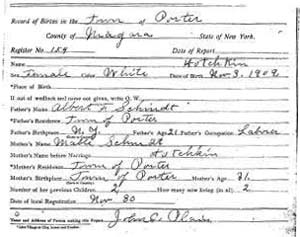 Record of Births in the Town of Porter
County of Niagara State of New York.
Register No. 154
Name Hotchkin
Sex Female Color White Date of Birth Nov 3, 1909
*Place of Birth
If out of wedlock and name not given, write O. W.
Father's Name Albert Schmidt
*Father's Residence Town of Porter
Father's Birthplace N. Y. Father's Age 21 Father's Occupation Laborer
Mother's Name Mable Schmidt
Mother's Name before Marriage Hotchkin
*Mother's Residence Town of Porter
Mother's Birthplace Town of Porter Mother's Age 21
Number of her previous Children 2 How many now living (in all) 2
Date of local Registration Nov 30
Name and Address of Person making this Report John C. Plain